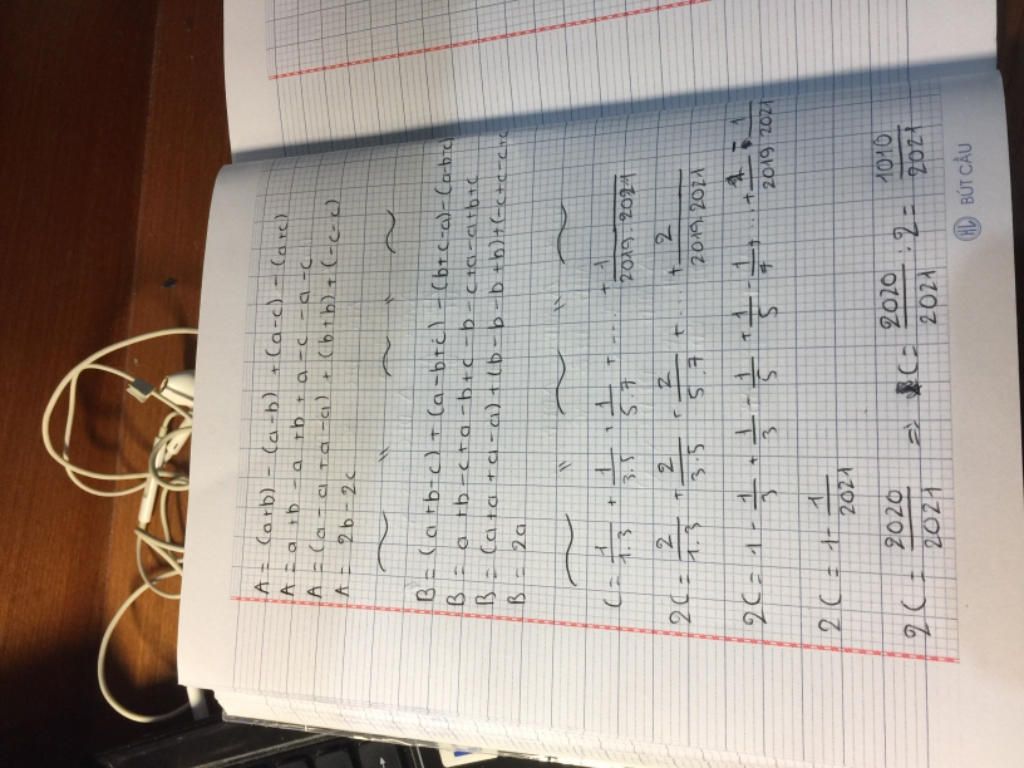 A = (a+b) - (a-b) + (a-c) - (a+c)
A = a+b - a+b + a-c - a-c
A = (a-a+a-a) + (b+b) + (-c-c)
A = 2b - 2c
B = (a+b-c) + (a-b+c) - (b+c-a) - (a-b-c)
B = a+b-c+a-b+c-b-c+a-a+b+c
B = (a+a+a-a) + (b-b-b+b) + (-c+c-c+c
B = 2a
C = 1/1.3 + 1/3.5 + 1/5.7 + .... + 1/2019.2021
2C = 2/1.3 + 2/3.5 + 2/5.7 + ... + 2/2019.2021
2C = 1 - 1/3 + 1/3 - 1/5 + 1/5 - 1/7 + ... + 1/2019 - 1/2021
2C = 1 - 1/2021
2C = 2020/2021 => C = 2020/2021 : 2 = 1010/2021
BÚT CÂU